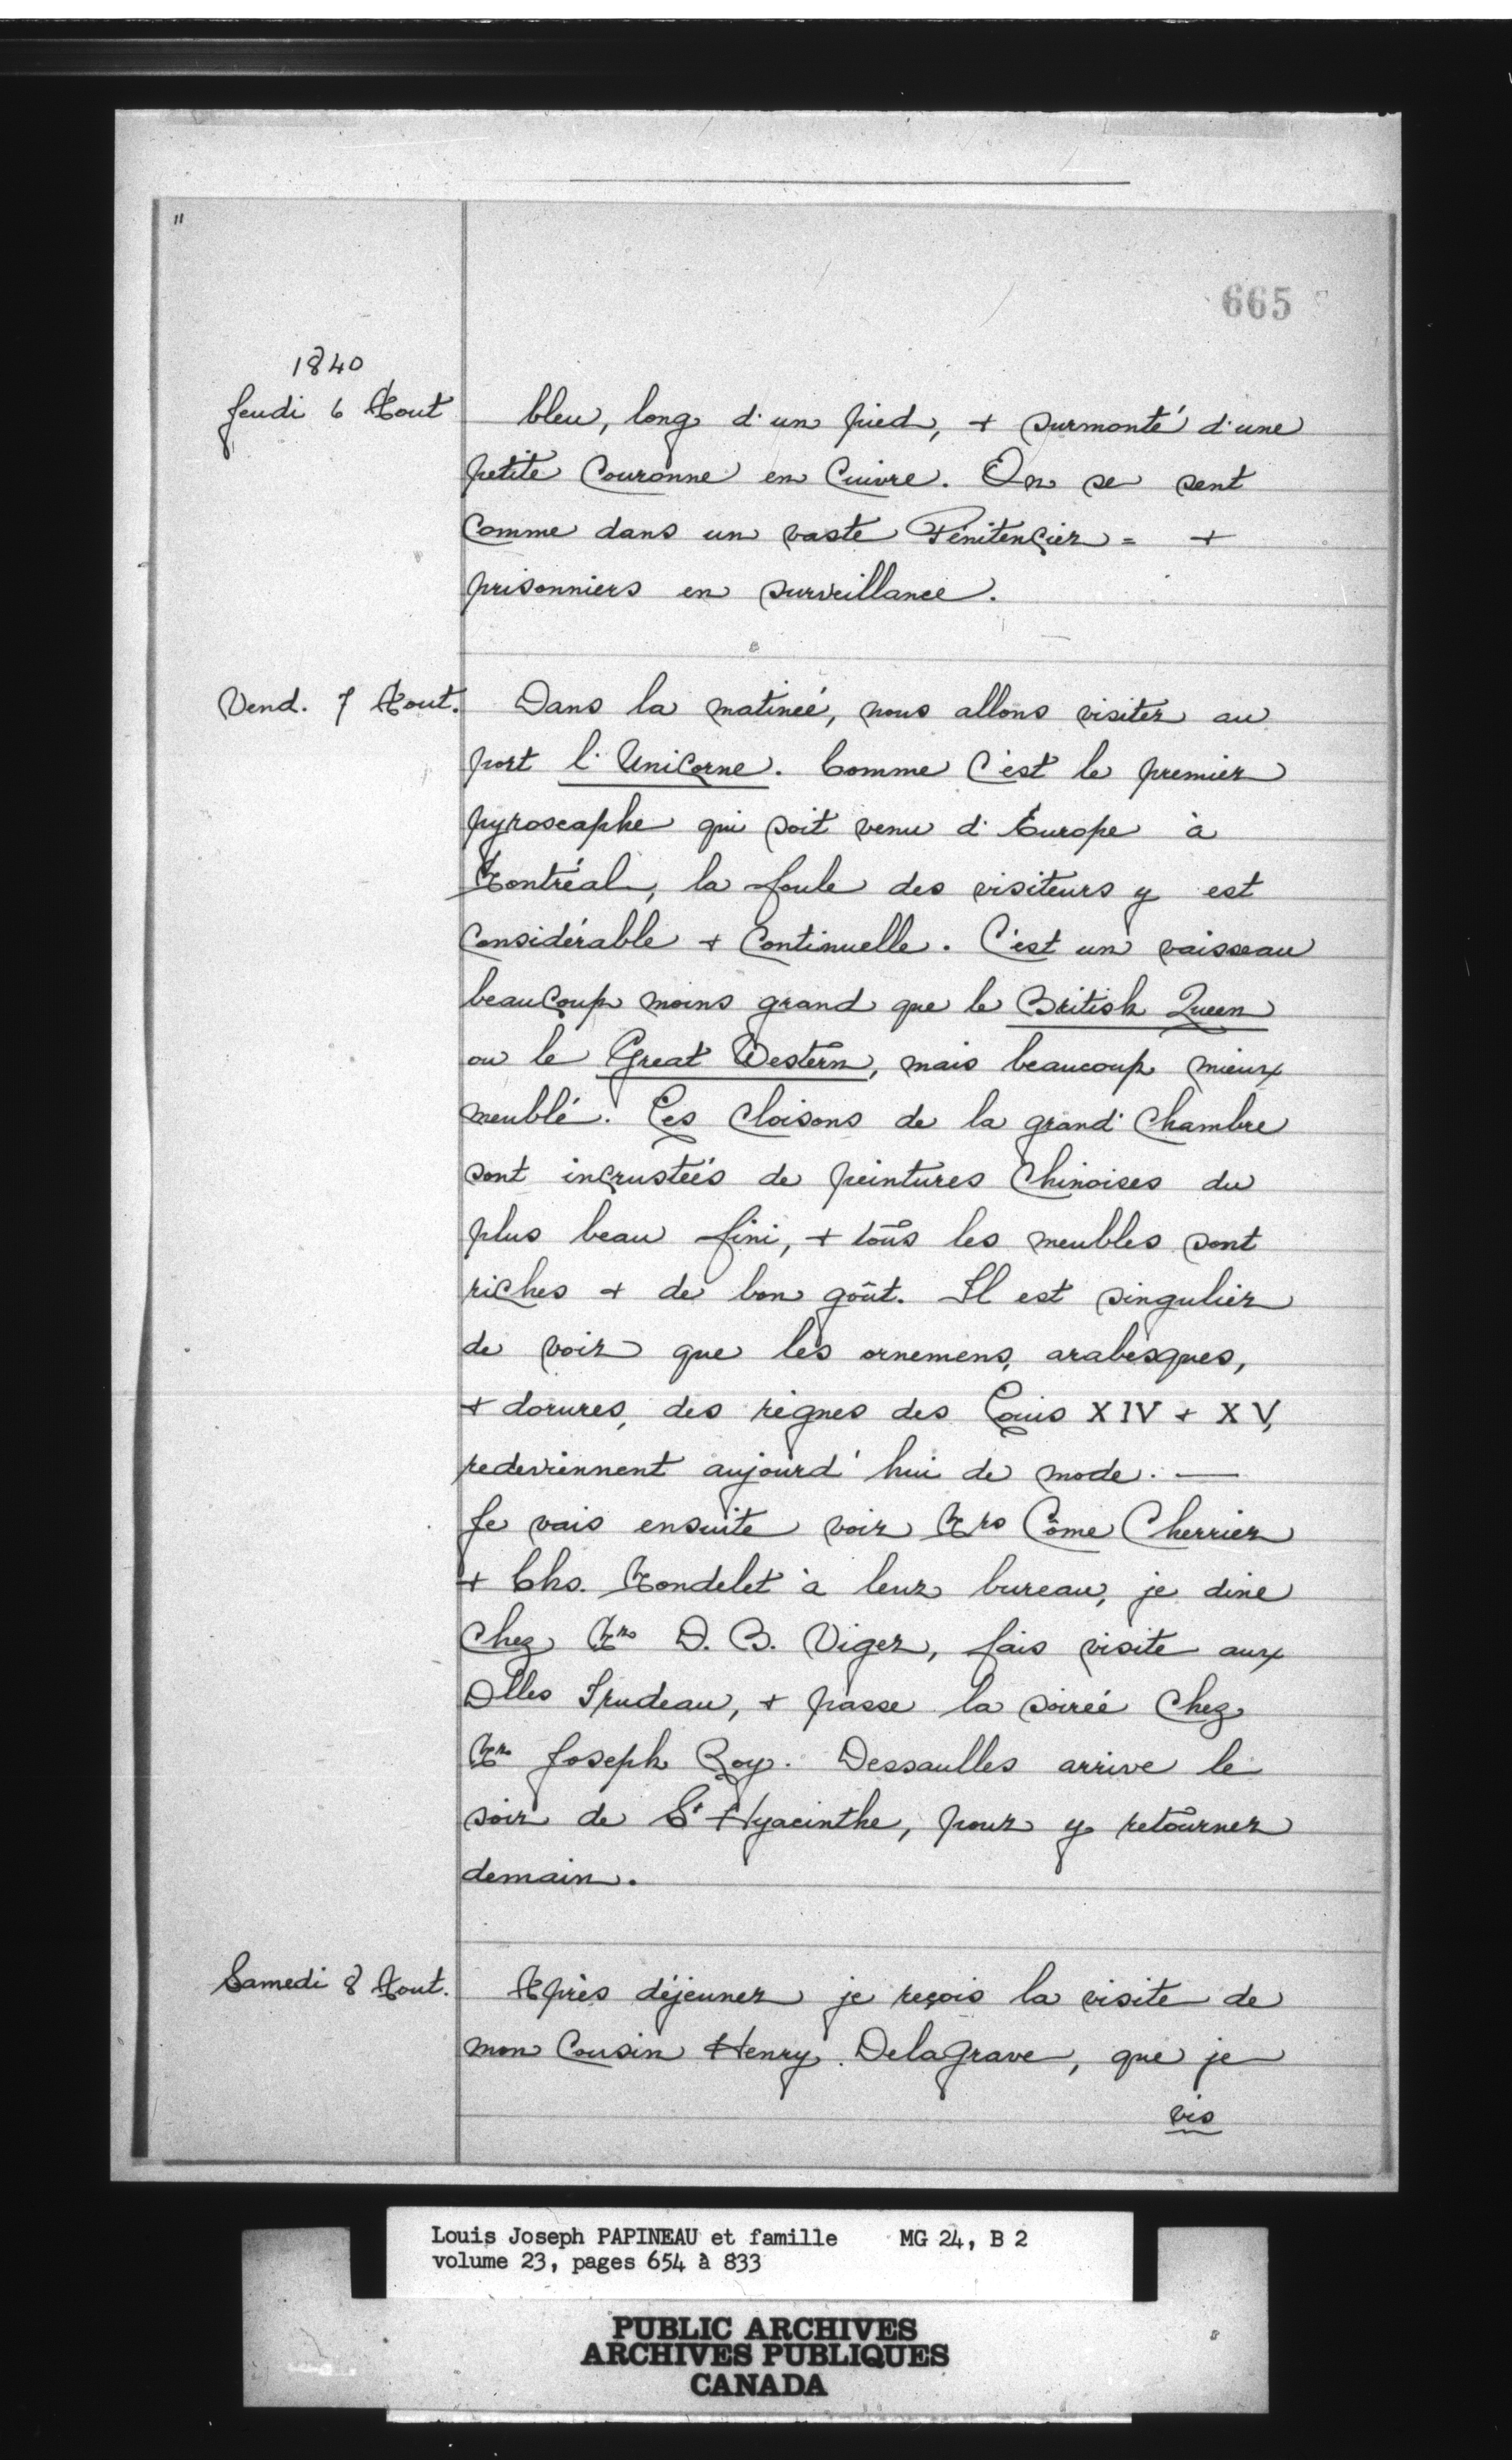 "
665
1840
Jeudi 6 Aout
bleu, long d'un pied, + surmonté d'une
petite Couronne en Cuivre. On se sent
Comme dans un vaste Pénitencier = +
prisonniers en surveillance.
Vend. 7 Aout.
Dans la matineé, nous allons visiter au
port l'Unicorne. Comme C'est le premier
pyroscaphe qui soit venu d'Europe à
Montréal, la foule des visiteurs y est
Considérable + Continuelle. C'est un vaisseau
beaucoup moins grand que le British Queen
ou le Great Western, mais beaucoup mieux
meublé. Les Cloisons de la grand' Chambre
sont incrusteés de peintures Chinoises du
plus beau fini, + tous les meubles sont
riches + de bon goût. Il est singulier
de voir que les ornemens, arabesques,
+ dorures, des règnes des Louis XIV + XV,
redeviennent aujourd'hui de mode. —
Je vais ensuite voir Mrs Côme Cherrier
+ Chs. Mondelet à leur bureau, je dine
Chez Mr D. B. Viger, fais visite aux
Dlles Trudeau, + passe la soireé Chez
Mr Joseph Roy. Dessaulles arrive le
soir de St Hyacinthe, pour y retourner
demain.
Samedi 8 Aout.
Après déjeuner je reçois la visite de
mon Cousin Henry DelaGrave, que je
vis
Louis Joseph PAPINEAU et famille MG 24, B 2
volume 23, pages 654 à 833
PUBLIC ARCHIVES
ARCHIVES PUBLIQUES
CANADA